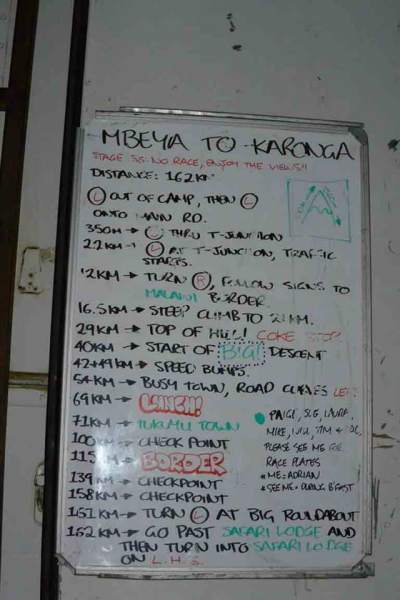 MBEYA TO KARONGA
STAGE 55: NO RACE, ENJOY THE VIEWS!!
DISTANCE: 162KM
L OUT OF CAMP, THEN L
ONTO MAIN RD.
350M → L THRU T-JUNCTION
2.2KM → L AT T-JUNCTION, TRAFFIC
STARTS.
12KM → TURN R, FOLLOW SIGNS TO
MALAWI BORDER.
16.5KM → STEEP CLIMB TO 21KM.
29KM → TOP OF HILL! COKE STOP
40KM → START OF BIG! DESCENT
42+49KM → SPEED BUMPS.
54KM → BUSY TOWN, ROAD CURVES LEFT
69KM → LUNCH!
71KM → TUKUYU TOWN
100KM → CHECK POINT
115KM → BORDER
139KM → CHECKPOINT
158KM → CHECKPOINT
161KM → TURN L AT BIG ROUNDABOUT
162KM → GO PAST SAFARI LODGE AND
THEN TURN INTO SAFARI LODGE
ON L.H.S.
PAIGE, SUE, LAURA,
MIKE, TIM +
PLEASE SEE ME RE.
RACE PLATES
*ME = ADRIAN
*SEE ME = DURING B'FAST